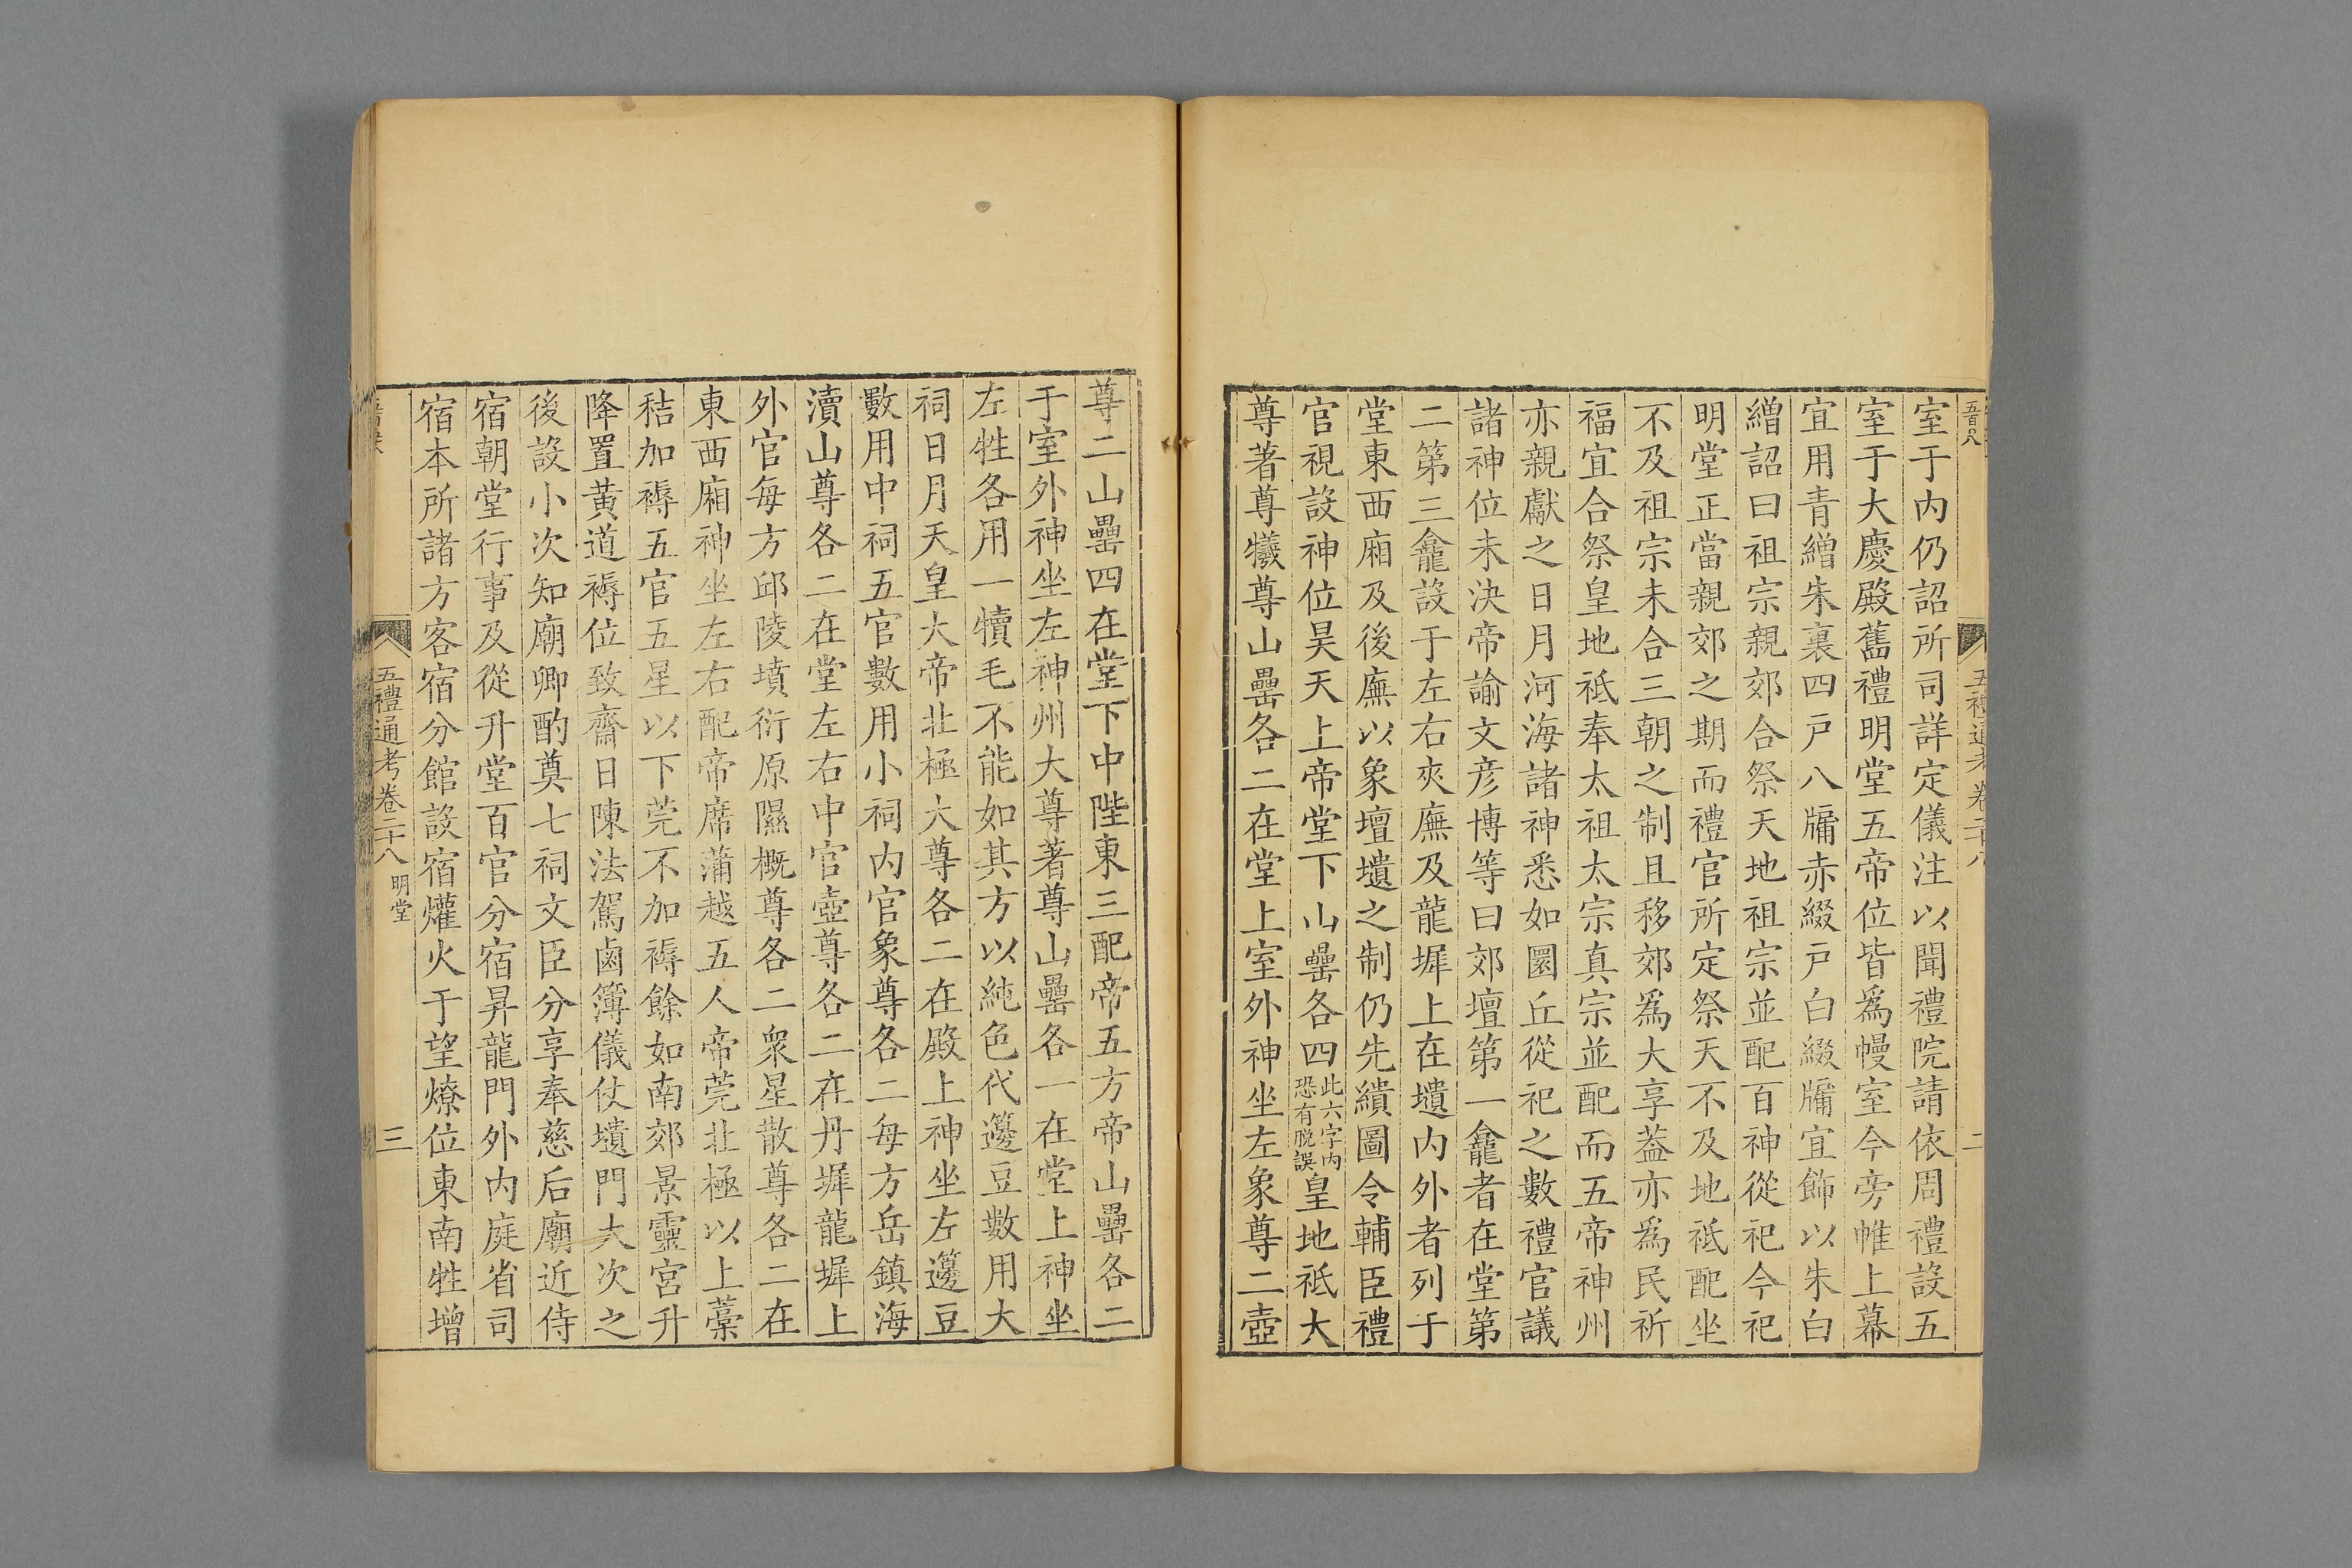 五禮通考卷二十八
二
室于内仍詔所司詳定儀注以聞禮院請依周禮設五
室于大慶殿舊禮明堂五帝位皆爲幔室今旁帷上幕
宜用青繒朱裏四戸八牖赤綴戸白綴牖宜飾以朱白
繒詔曰祖宗親郊合祭天地祖宗並配百神從祀今祀
明堂正當親郊之期而禮官所定祭天不及地祗配坐
不及祖宗未合三朝之制且移郊爲大享葢亦爲民祈
福宜合祭皇地祗奉太祖太宗真宗並配而五帝神州
亦親獻之日月河海諸神悉如圜丘從祀之數禮官議
諸神位未決帝諭文彦博等曰郊壇第一龕者在堂第
二第三龕設于左右夾廡及龍墀上在壝内外者列于
堂東西廂及後廡以象壇壝之制仍先繢圖令輔臣禮
官視設神位昊天上帝堂下山罍各四此六字内恐有脱誤皇地祗大
尊著尊犧尊山罍各二在堂上室外神坐左象尊二壺
尊二山罍四在堂下中陛東三配帝五方帝山罍各二
于室外神坐左神州大尊著尊山罍各一在堂上神坐
左牲各用一犢毛不能如其方以純色代籩豆數用大
祠日月天皇大帝北極大尊各二在殿上神坐左籩豆
數用中祠五官數用小祠内官象尊各二每方岳鎮海
瀆山尊各二在堂左右中官壺尊各二在丹墀龍墀上
外官每方邱陵墳衍原隰概尊各二衆星散尊各二在
東西廂神坐左右配帝席蒲越五人帝莞北極以上藁
秸加褥五官五星以下莞不加褥餘如南郊景靈宮升
降置黄道褥位致齋日陳法駕鹵簿儀仗壝門大次之
後設小次知廟卿酌奠七祠文臣分享奉慈后廟近侍
宿朝堂行事及從升堂百官分宿昇龍門外内庭省司
宿本所諸方客宿分館設宿爟火于望燎位東南牲增
五禮通考卷二十八 明堂
三